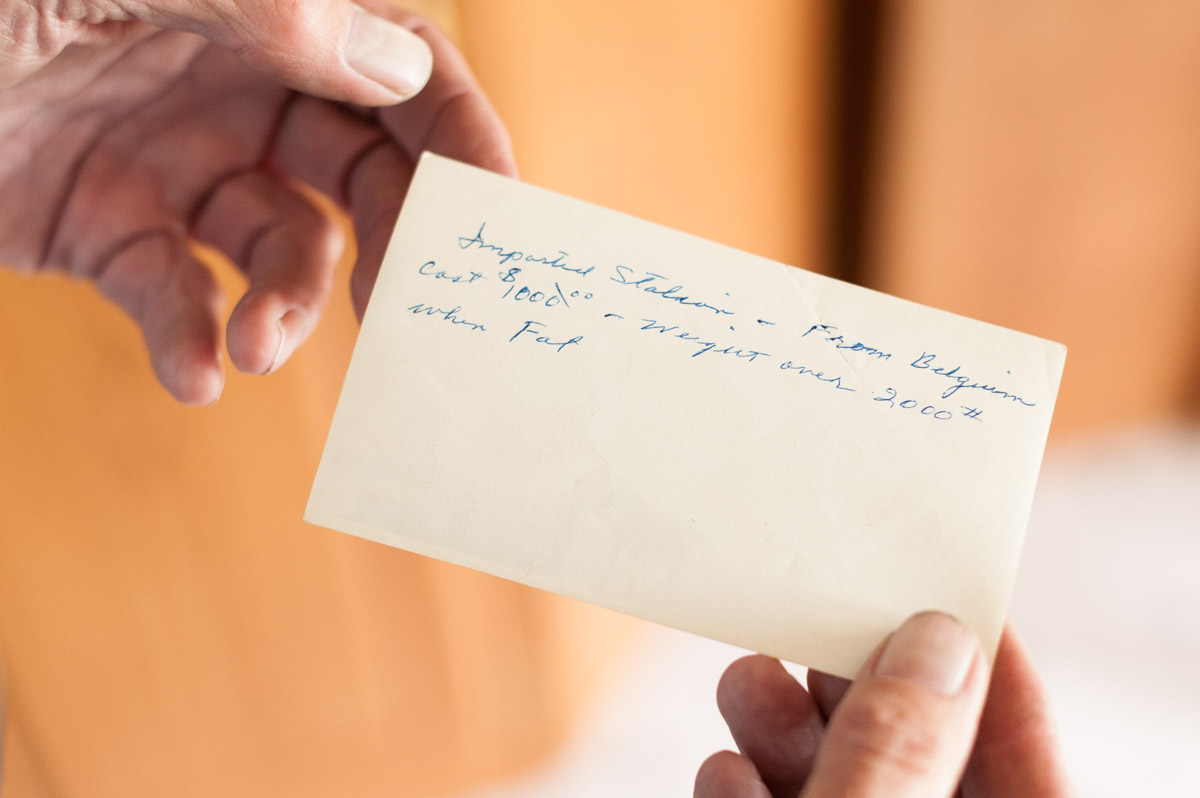 Imported Stalion - From Belguim
Cost $1000\00 - Weight over 2000#
when Fat